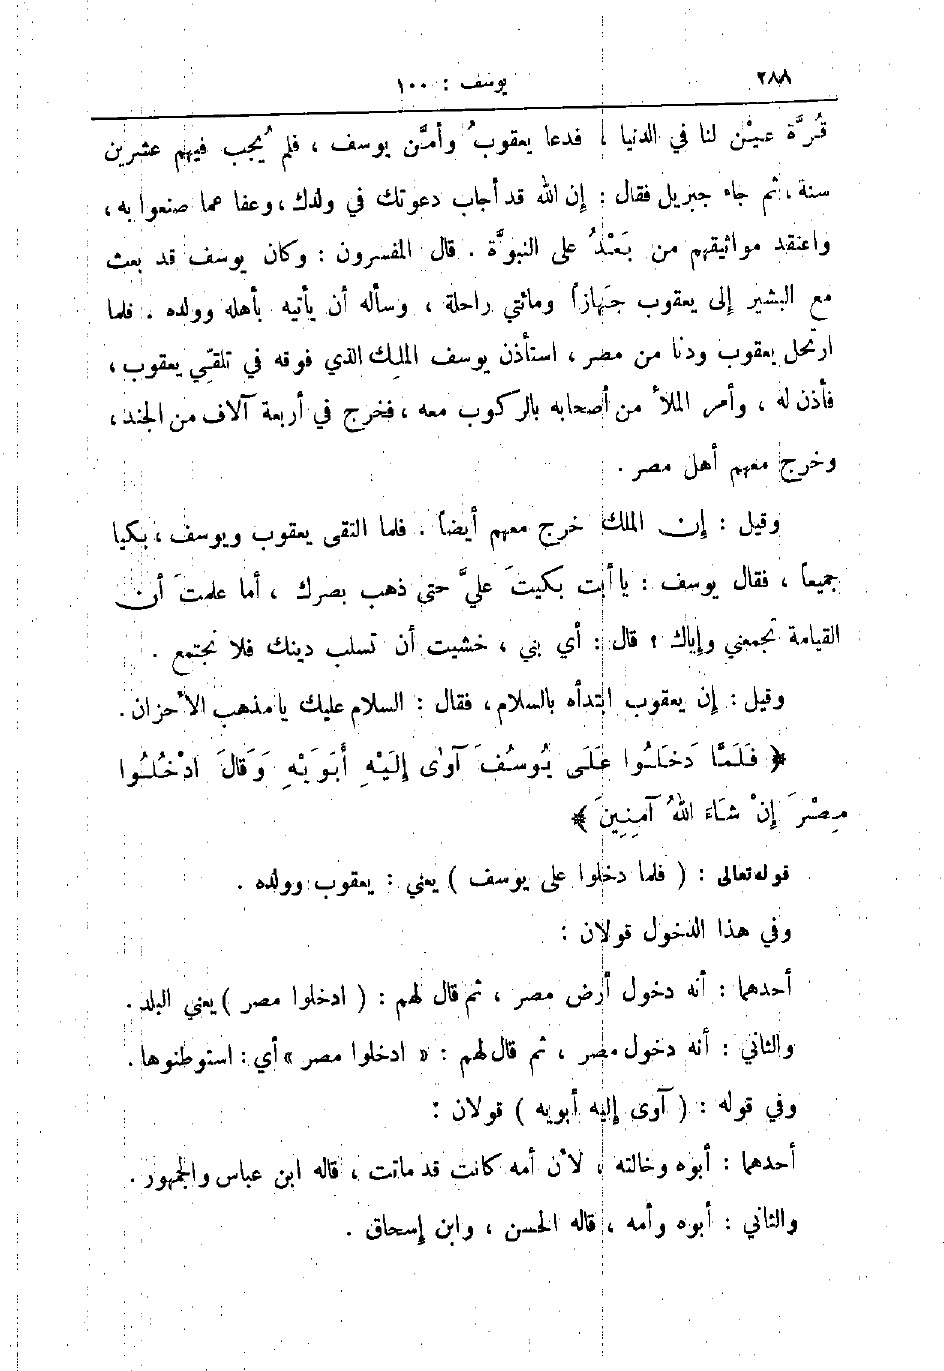 ٢٨٨ يوسف : ١٠٠
قُرَّة عيْن لنا في الدنيا ، فدعا يعقوبُ وأمَّن يوسف ، فلم يُجب فيهم عشرين
سنة ، ثم جاء جبريل فقال : إن الله قد أجاب دعوتك في ولدك ، وعفا عما صنعوا به ،
واعتقد مواثيقهم من بَعْدُ على النبوَّة . قال المفسرون : وكان يوسف قد بعث
مع البشير إلى يعقوب جَهازاً ومائتي راحلة ، وسأله أن يأتيه بأهله وولده . فلما
ارتحل يعقوب ودنا من مصر ، استأذن يوسف الملِك الذي فوقه في تلقّي يعقوب ،
فأذن له ، وأمر الملأ من أصحابه بالركوب معه ، فخرج في أربعة آلاف من الجند ،
وخرج معهم أهل مصر .
وقيل : إن الملك خرج معهم أيضاً . فلما التقى يعقوب ويوسف ، بكيا
جميعاً ، فقال يوسف : يا أبت بكيتَ عليَّ حتى ذهب بصرك ، أما علمتَ أن
القيامة تجمعني وإياك ؟ قال : أي بني ، خشيت أن تسلب دينك فلا نجتمع .
وقيل : إن يعقوب ابتدأه بالسلام ، فقال : السلام عليك يا مذهب الأحزان .
﴿ فَلَمَّا دَخَلُوا عَلَى يُوسُفَ آوٰى إِلَيْهِ أَبَوَيْهِ وَقَالَ ادْخُلُوا
مِصْرَ إِنْ شَاءَ اللهُ آمِنِينَ ﴾
قوله تعالى : ( فلما دخلوا على يوسف ) يعني : يعقوب وولده .
وفي هذا الدخول قولان :
أحدهما : أنه دخول أرض مصر ، ثم قال لهم : ( ادخلوا مصر ) يعني البلد .
والثاني : أنه دخول مصر ، ثم قال لهم : « ادخلوا مصر » أي : استوطنوها .
وفي قوله : ( آوى إليه أبويه ) قولان :
أحدهما : أبوه وخالته ، لأن أمه كانت قد ماتت ، قاله ابن عباس والجمهور .
والثاني : أبوه وأمه ، قاله الحسن ، وابن إسحاق .